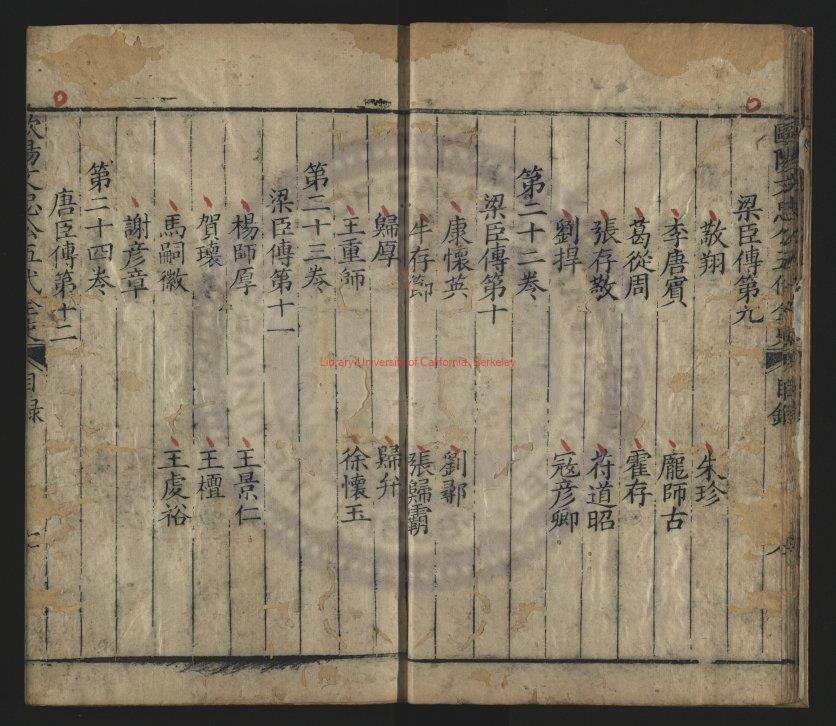 歐陽文忠公五代 目錄
梁臣傳第九
敬翔 朱珍
李唐賓 龐師古
葛從周 霍存
張存敬 苻道昭
劉捍 寇彥卿
第二十二卷
梁臣傳第十
康懷英 劉鄩
牛存節 張歸霸
歸厚 歸弁
王重師 徐懷玉
第二十三卷
梁臣傳第十一
楊師厚 王景仁
賀瓌 王檀
馬嗣徽 王虔裕
謝彥章
第二十四卷
唐臣傳第十二
目録
Library University of California, Berkeley